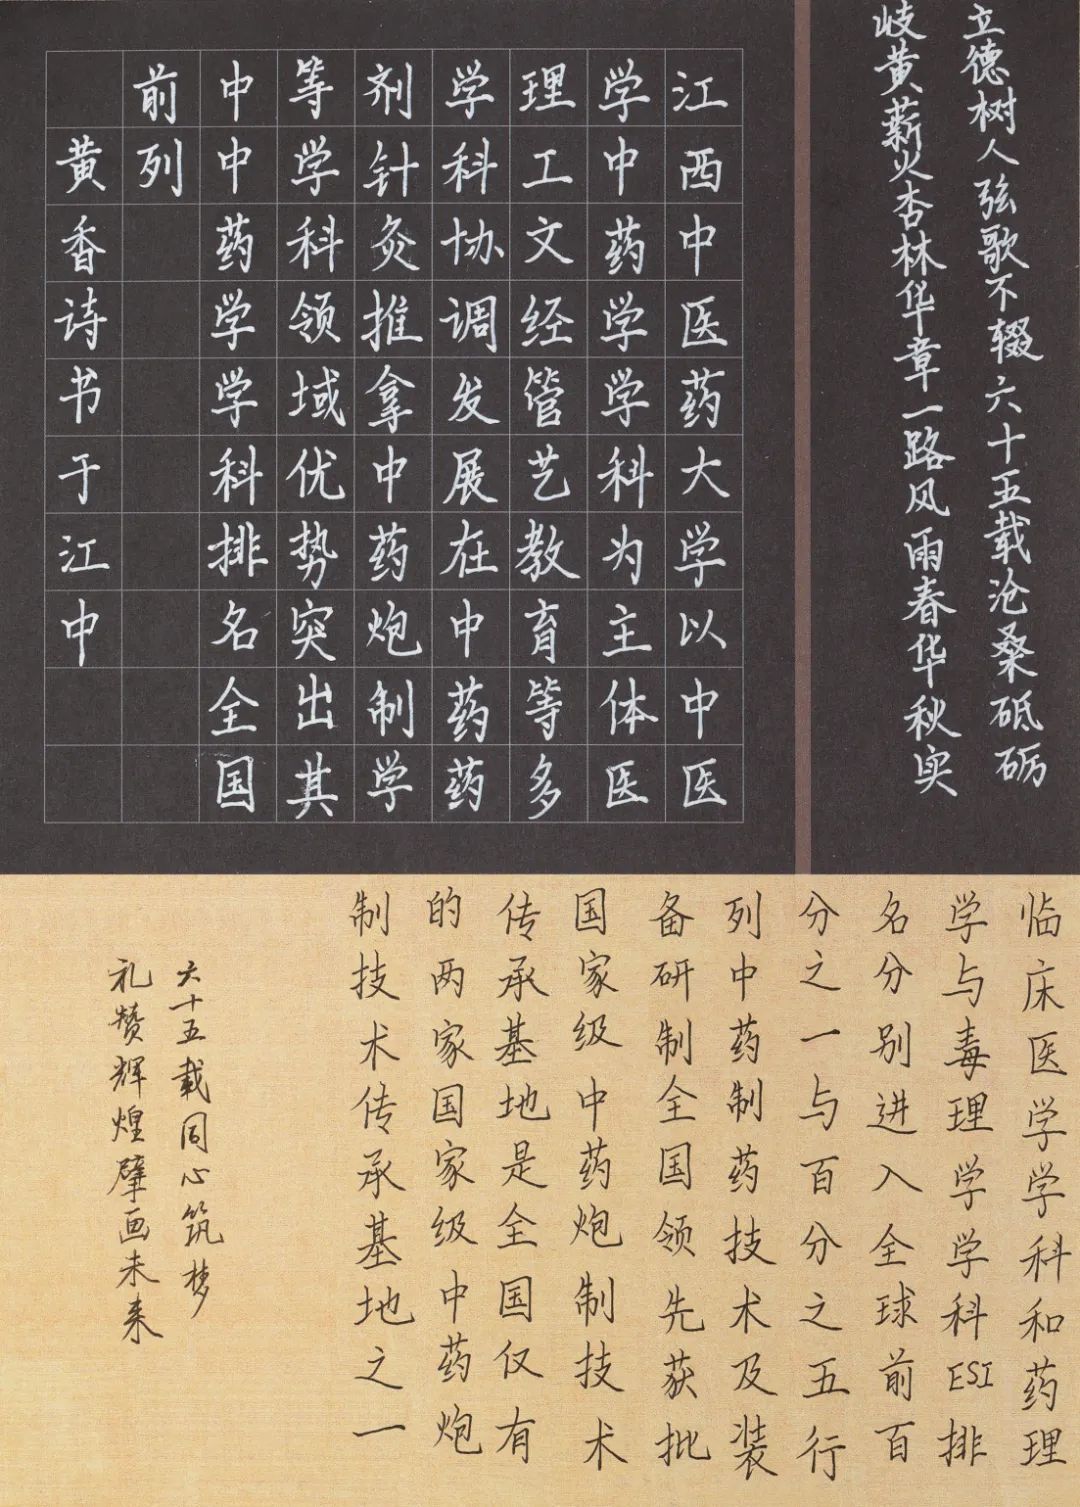 立德树人弦歌不辍六十五载沧桑砥砺
岐黄薪火杏林华章一路风雨春华秋实
江西中医药大学以中医
学中药学学科为主体医
理工文经管艺教育等多
学科协调发展在中药药
剂针灸推拿中药炮制学
等学科领域优势突出其
中中药学学科排名全国
前列
黄香诗书于江中
临床医学学科和药理
学与毒理学学科ESI排
名分别进入全球前百
分之一与百分之五行
列中药制药技术及装
备研制全国领先获批
国家级中药炮制技术
传承基地是全国仅有
的两家国家级中药炮
制技术传承基地之一
六十五载同心筑梦
礼赞辉煌擘画未来